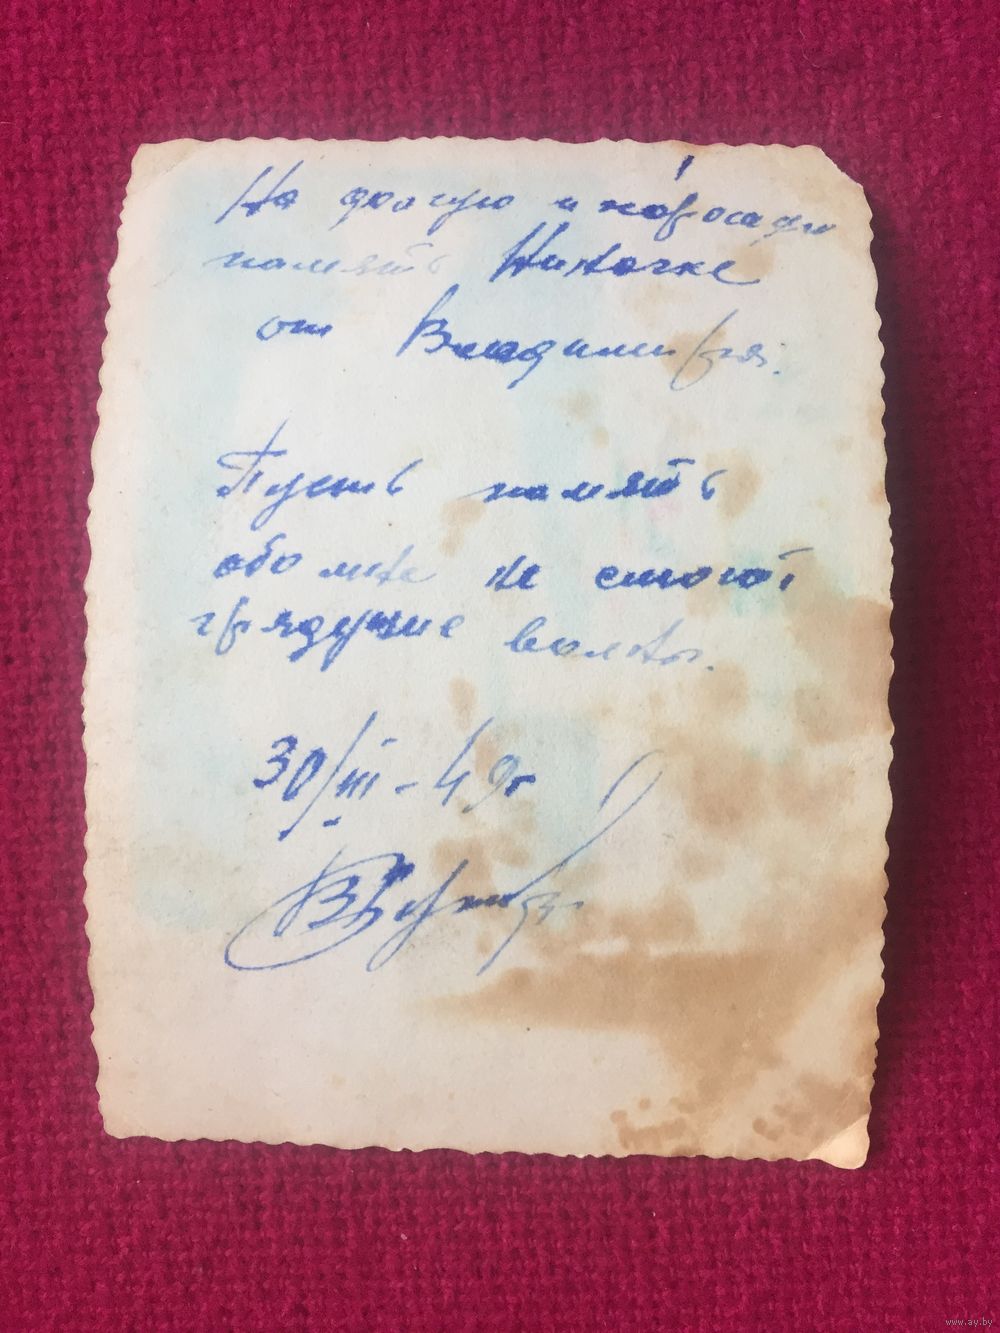 На долгую и хорошую
память Ниночке
от Владимира.
Пусть память
обо мне не смоют
грядущие волны.
30/III-49г
www.ay.by